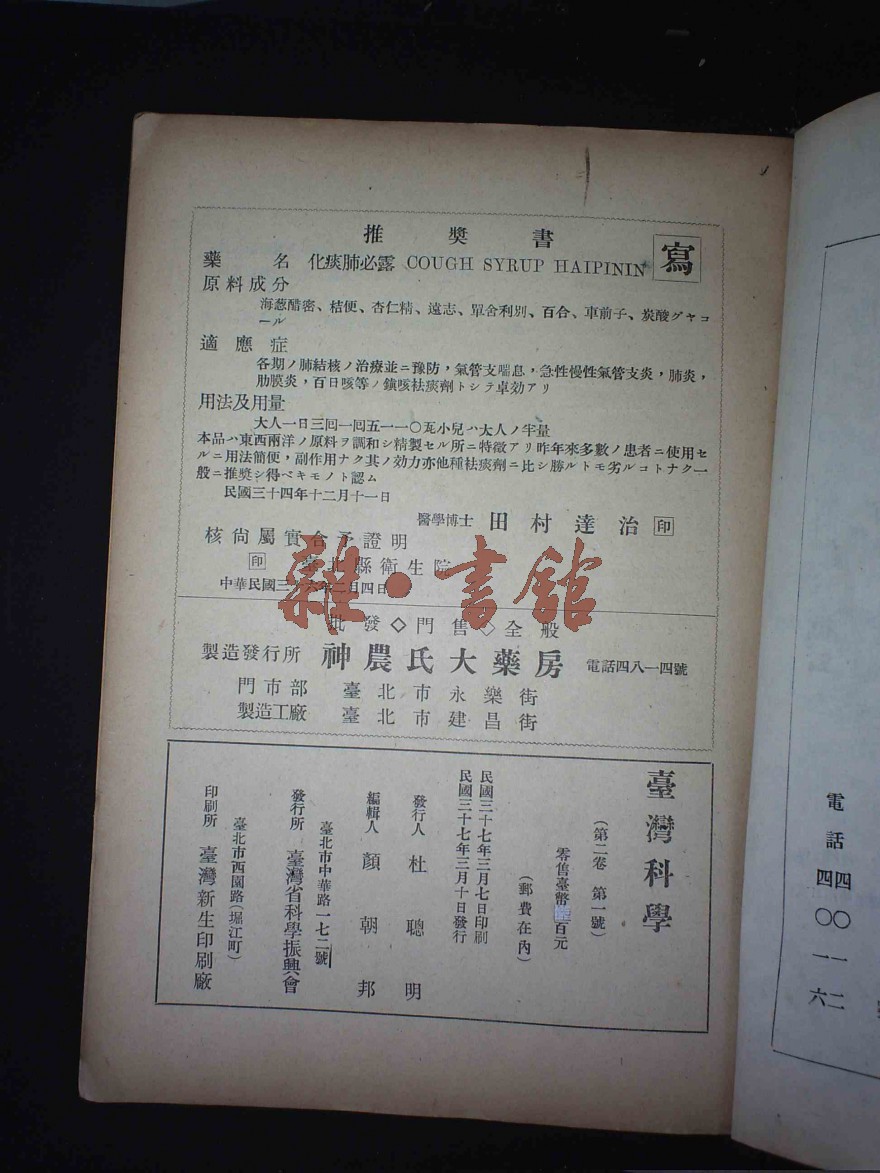 寫
推奬書
藥名 化痰肺必露 COUGH SYRUP HAIPININ
原料成分
海葱醋密、桔便、杏仁精、遠志、單舍利別、百合、車前子、炭酸グヤコ
ール
適應症
各期ノ肺結核ノ治療並ニ豫防，氣管支喘息，急性慢性氣管支炎，肺炎，
肋膜炎，百日咳等ノ鎮咳袪痰劑トシラ卓効アリ
用法及用量
大人一日三囘一囘五一一〇瓦小兒ハ大人ノ半量
本品ハ東西兩洋ノ原料ヲ調和シ精製セル所ニ特徵アリ昨年來多數ノ患者ニ使用セ
ルニ用法簡便，副作用ナク其ノ効力亦他種袪痰劑ニ比シ勝ルトモ劣ルコトナク一
般ニ推奬シ得ベキモノト認ム
民國三十四年十二月十一日
醫學博士 田村達治 印
核尙屬實合予證明
印 臺北縣衛生院
中華民國三十六年二月四日
雜·書館
批發◇門售◇全般
製造發行所 神農氏大藥房 電話四八一四號
門市部 臺北市永樂街
製造工廠 臺北市建昌街
臺灣科學
(第二卷 第一號)
零售臺幣百元
(郵費在內)
民國三十七年三月七日印刷
民國三十七年三月十日發行
發行人 杜聰明
編輯人 顏朝邦
臺北市中華路一七二號
發行所 臺灣省科學振興會
臺北市西園路(堀江町)
印刷所 臺灣新生印刷廠
電話
四〇一二
四〇一六